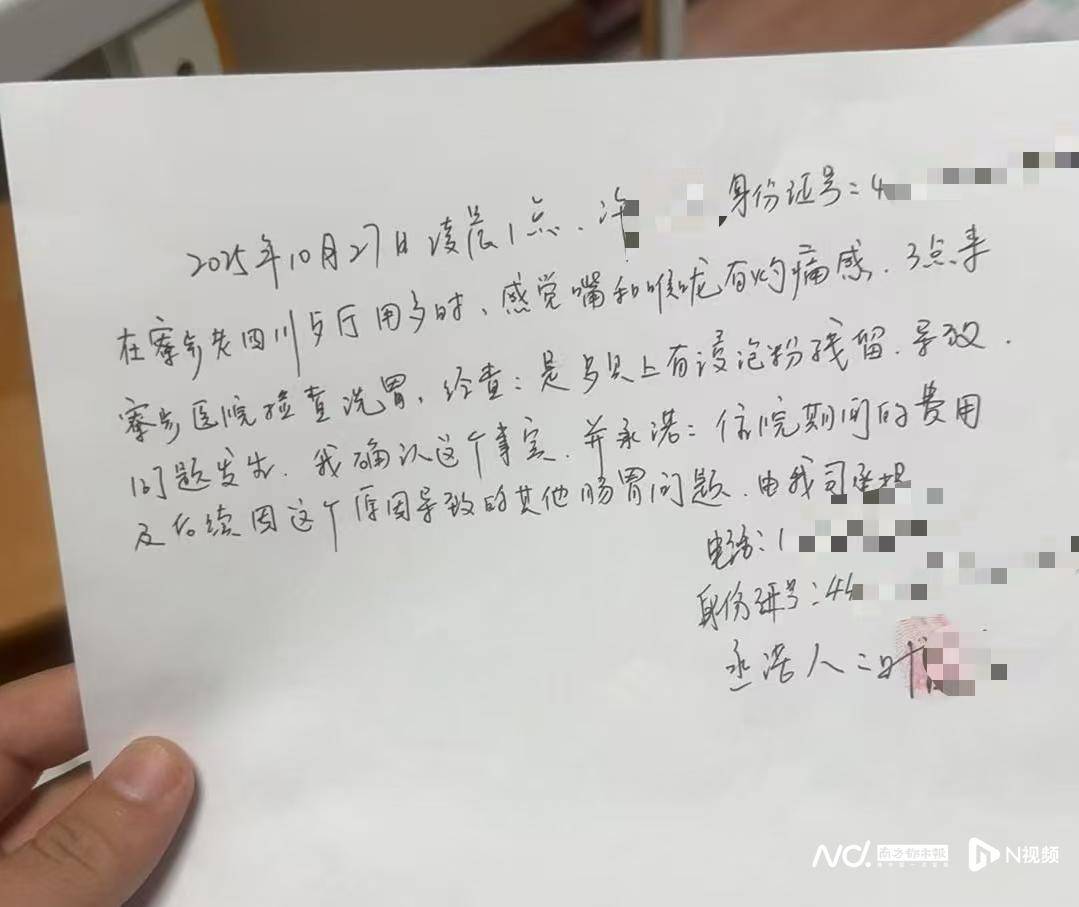 2025年10月27日凌晨1点、许 身份证号：4
在寮步老四川歺厅用歺时、感觉嘴和喉咙有灼痛感、3点来
寮步医院检查洗胃、经查：是歺具上有浸泡粉残留、导致、
问题发生、我确认这个事实、并承诺：住院期间的费用
及后续因这个原因导致的其他肠胃问题、由我司承担
电话：1
身份证号：44
承诺人：叶
南方都市报
N视频